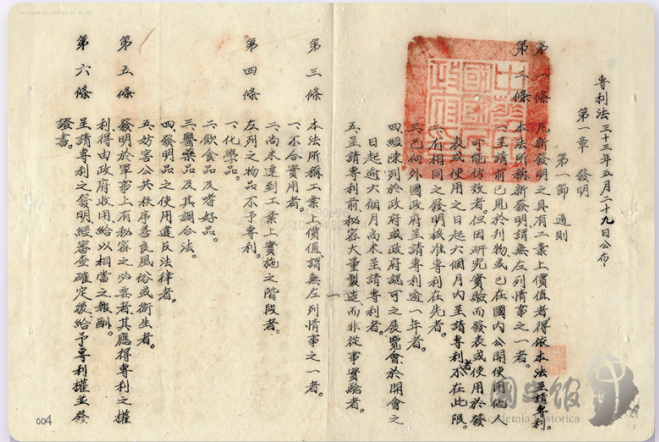 專利法 三十三年五月二十九日公布
第一章 發明
第一節 通則
第一條 凡新發明之具有工業上價值者得依本法呈請專利。
第二條 本法所稱新發明謂無左列情事之一者。
一、呈請前已見於刊物或已在國內公開使用他人
可能仿效者。但因研究實驗而發表或使用於發
表或使用之日起六個月內呈請專利者不在此限。
二、有相同之發明核准專利在先者。
三、已向外國政府呈請專利逾一年者。
四、經陳列於政府或政府認可之展覽會於開會之
日起逾六個月尚未呈請專利者。
五、呈請專利前秘密大量製造而非從事實驗者。
第三條 本法所稱工業上價值謂無左列情事之一者。
一、不合實用者。
二、尚未達到工業上實施之階段者。
第四條 左列之物品不予專利。
一、化學品。
二、飲食品及嗜好品。
三、醫藥品及其調合法。
四、發明品之使用違反法律者。
五、妨害公共秩序善良風俗或衛生者。
第五條 發明於軍事上有秘密之必要者其應得專利之權
利得由政府收用給以相當之報酬。
第六條 呈請專利之發明經審查確定後給予專利權並發
證書。
004
國史館
Academia Historica